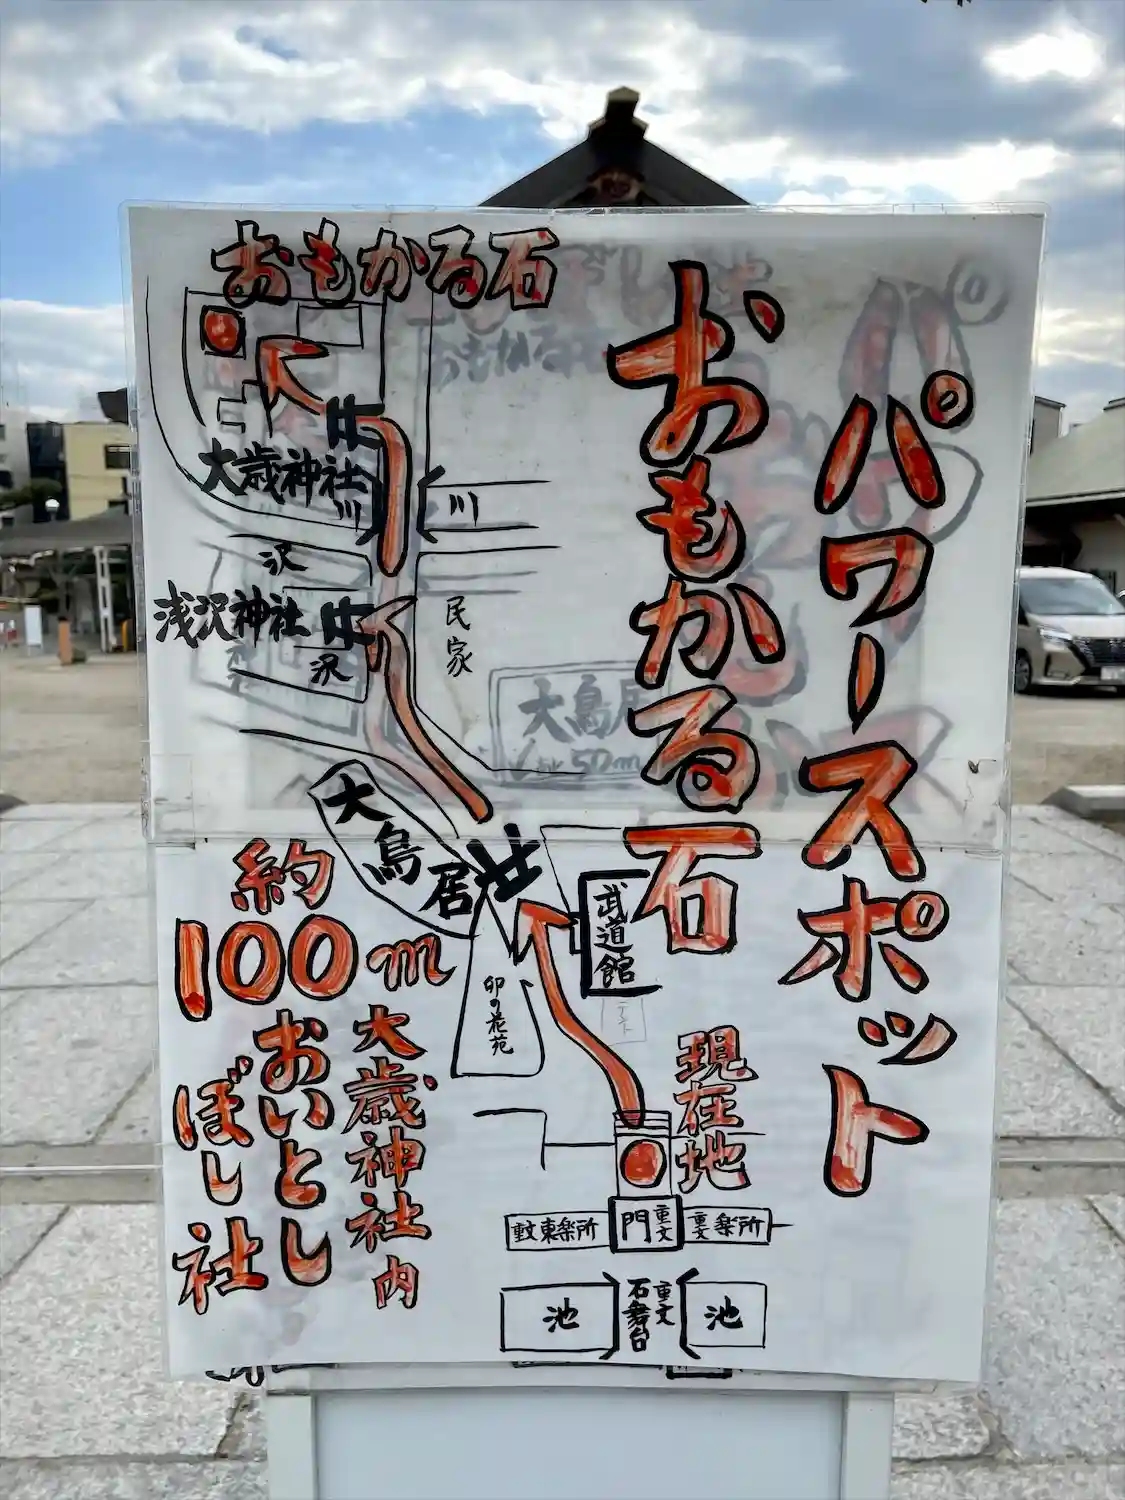 パワースポット
おもかる石
おもかる石
大歳神社
川
川
沢
浅沢神社
沢
民
家
大鳥居
大鳥居
50m
武道館
卯の花苑
テント
約
100m
大歳神社内
おいとし
ぼし社
現在地
重文東楽所
門
重文
重文楽所
池
石舞台
重文
池